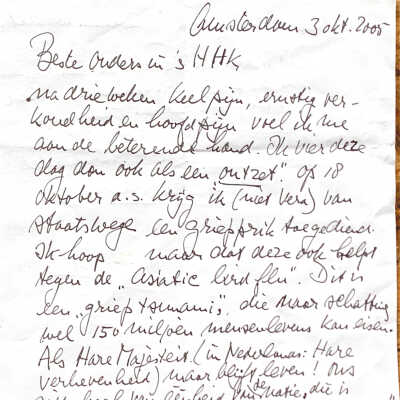 Amsterdam 3 okt. 2005
Beste ouders in 's HHK
na drie weken keelpijn, ernstig ver-
koudheid en hoofdpijn voel ik me
aan de beterende hand. Ik vier deze
dag dan ook als een "ontzet". op 18
oktober a.s. krijg ik (niet Vera) van
staatswege een griepprik toegediend.
Ik hoop maar dat deze ook helpt
tegen de "asiatic bird flu". Dit is
een "griep tsunami", die naar schatting
wel 150 miljoen mensenlevens kan eisen.
Als Hare Majesteit (in Nederland: Hare
verhevenheid) maar blijft leven! Ons
van eenheid de natie, die is